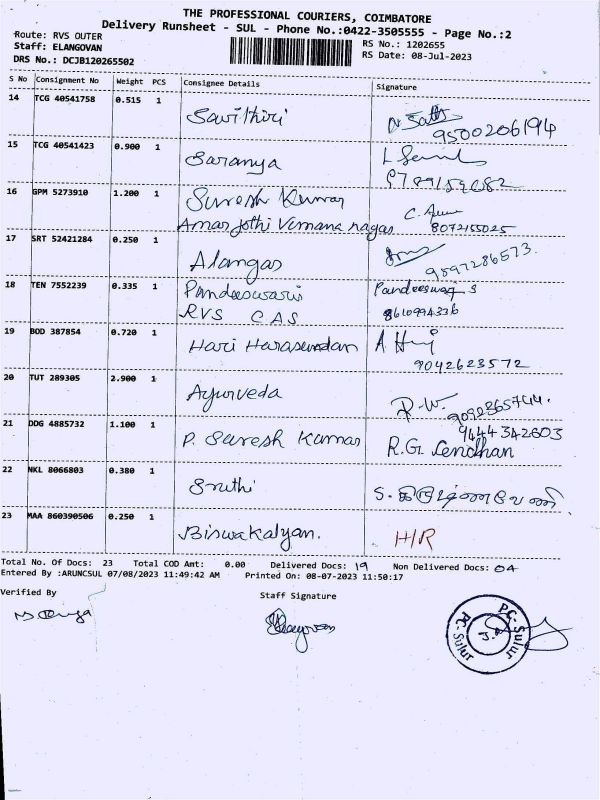 THE PROFESSIONAL COURIERS, COIMBATORE
Delivery Runsheet - SUL - Phone No.:0422-3505555 - Page No.:2
Route: RVS OUTER
Staff: ELANGOVAN
DRS No.: DCJB120265502
RS No.: 1202655
RS Date: 08-Jul-2023
S No Consignment No Weight PCS Consignee Details Signature
14 TCG 40541758 0.515 1 Savithiri
9500206194
15 TCG 40541423 0.900 1 Saranya
16 GPM 5273910 1.200 1 Suresh Kumar
Amar Jothi Vimana nagar 8072155025
17 SRT 52421284 0.250 1 Alangar
9597286573.
18 TEN 7552239 0.335 1 Pandeeswari Pandeeswari S
RVS CAS 8610994336
19 BOD 387854 0.720 1 Hari Harasundan
9042623572
20 TUT 289305 2.900 1 Ayurveda R.W.
21 DDG 4885732 1.100 1 P. Suresh Kumar 9444342603
R.G.
22 NKL 8066803 0.380 1 Sruthi
23 MAA 860390506 0.250 1 Biswakalyan. H/R
Total No. Of Docs: 23 Total COD Amt: 0.00 Delivered Docs: 19 Non Delivered Docs: 04
Entered By :ARUNCSUL 07/08/2023 11:49:42 AM Printed On: 08-07-2023 11:50:17
Verified By
Staff Signature
Elangovan
PC-Sulur
PC-Sulur